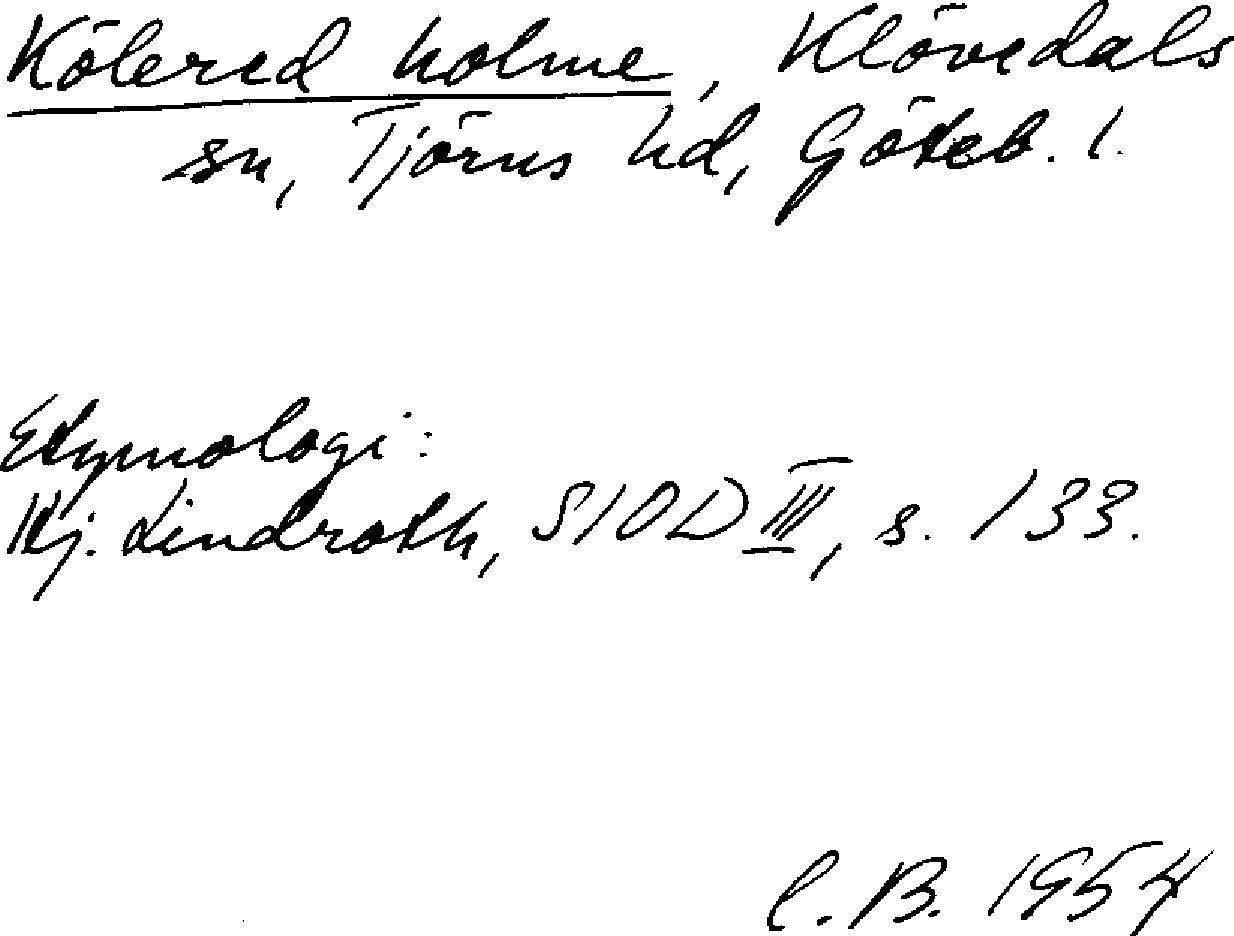 Kölered holme, Klövedals
sn, Tjörns hd, Göteb. l.
Etymologi:
Hj. Lindroth, SIOD III, s. 133.
C. B. 1954